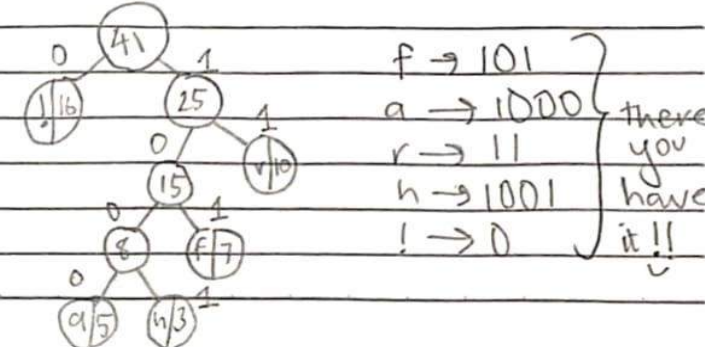 41
0 1
!|16 25
0 1
15 r|10
0 1
8 f|7
0 1
a|5 h|3
f → 101
a → 1000
r → 11
h → 1001
! → 0
there
you
have
it!!